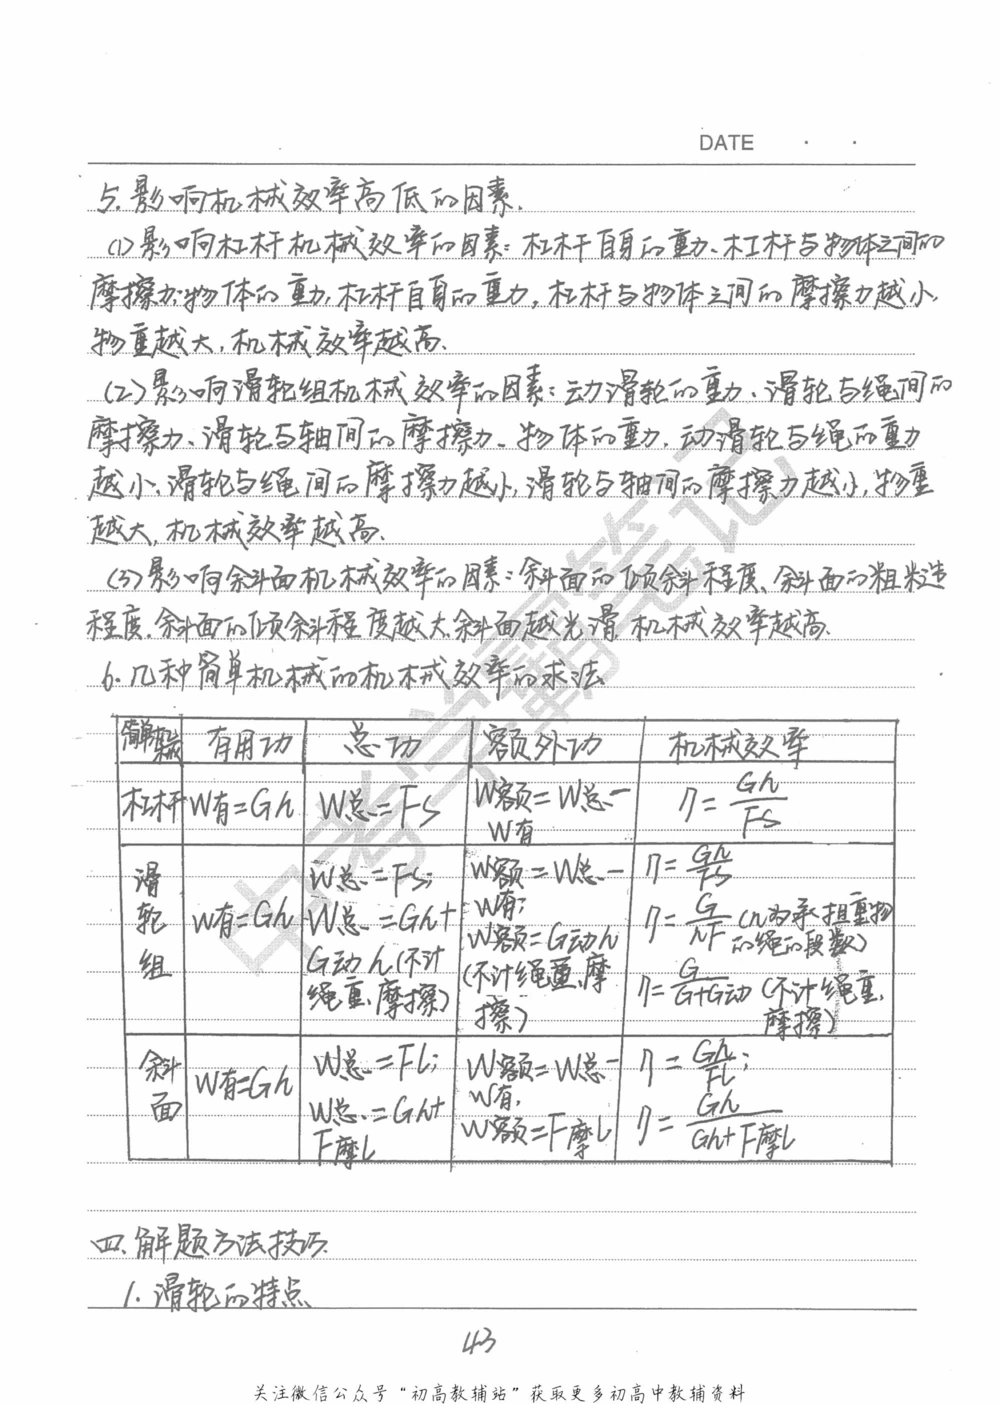 DATE . .
5.影响机械效率高低的因素.
(1)影响杠杆机械效率的因素:杠杆自身的重力、杠杆与物体之间的
摩擦力.物体的重力,杠杆自身的重力,杠杆与物体之间的摩擦力越小,
物重越大,机械效率越高.
(2)影响滑轮组机械效率的因素:动滑轮的重力、滑轮与绳间的
摩擦力、滑轮与轴间的摩擦力、物体的重力.动滑轮与绳的重力
越小、滑轮与绳间的摩擦力越小,滑轮与轴间的摩擦力越小,物重
越大,机械效率越高.
(3)影响斜面机械效率的因素:斜面的倾斜程度、斜面的粗糙
程度.斜面的倾斜程度越大,斜面越光滑,机械效率越高.
6.几种简单机械的机械效率的求法
简单机械 有用功 总功 额外功 机械效率
杠杆 W有=Gh W总=Fs W额=W总-W有 η=Gh/Fs
滑轮组 W有=Gh W总=Fs; W总=Gh+G动h(不计绳重、摩擦) W额=W总-W有; W额=G动h(不计绳重、摩擦) η=Gh/Fs η=G/nF(n为承担重物的绳的段数) η=G/G+G动(不计绳重、摩擦)
斜面 W有=Gh W总=Fl; W总=Gh+F摩l W额=W总-W有, W额=F摩l η=Gh/Fl; η=Gh/Gh+F摩l
四.解题方法技巧.
1.滑轮的特点
43
关注微信公众号“初高教辅站”获取更多初高中教辅资料
中考学霸笔记